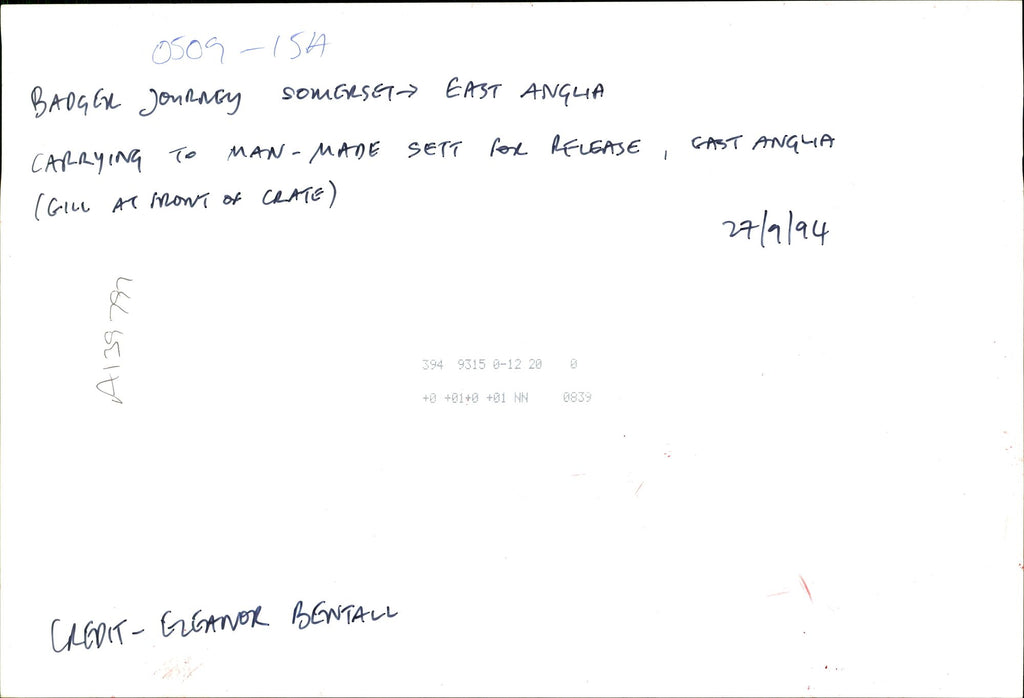 0509-15A
BADGER JOURNEY SOMERSET→ EAST ANGLIA
CARRYING TO MAN-MADE SETT FOR RELEASE, EAST ANGLIA
(GILL AT FRONT OF CRATE)
27/9/94
A139797
394 9315 0-12 20 0
+0 +01+0 +01 NN 0839
CREDIT- ELEANOR BENTALL